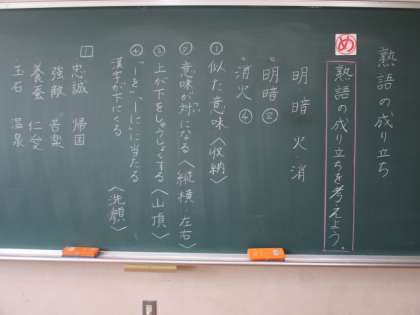 熟語の成り立ち
め 熟語の成り立ちを考えよう。
明 暗 火 消
・明暗②
・消火④
①似た意味〈収納〉
②意味が対になる〈縦横 左右〉
③上が下をしゅうしょくする〈山頂〉
④「ーを」「ーに」に当たる
漢字が下にくる〈洗顔〉
1 忠誠 帰国
強敵 苦楽
養蚕 仁愛
玉石 温泉